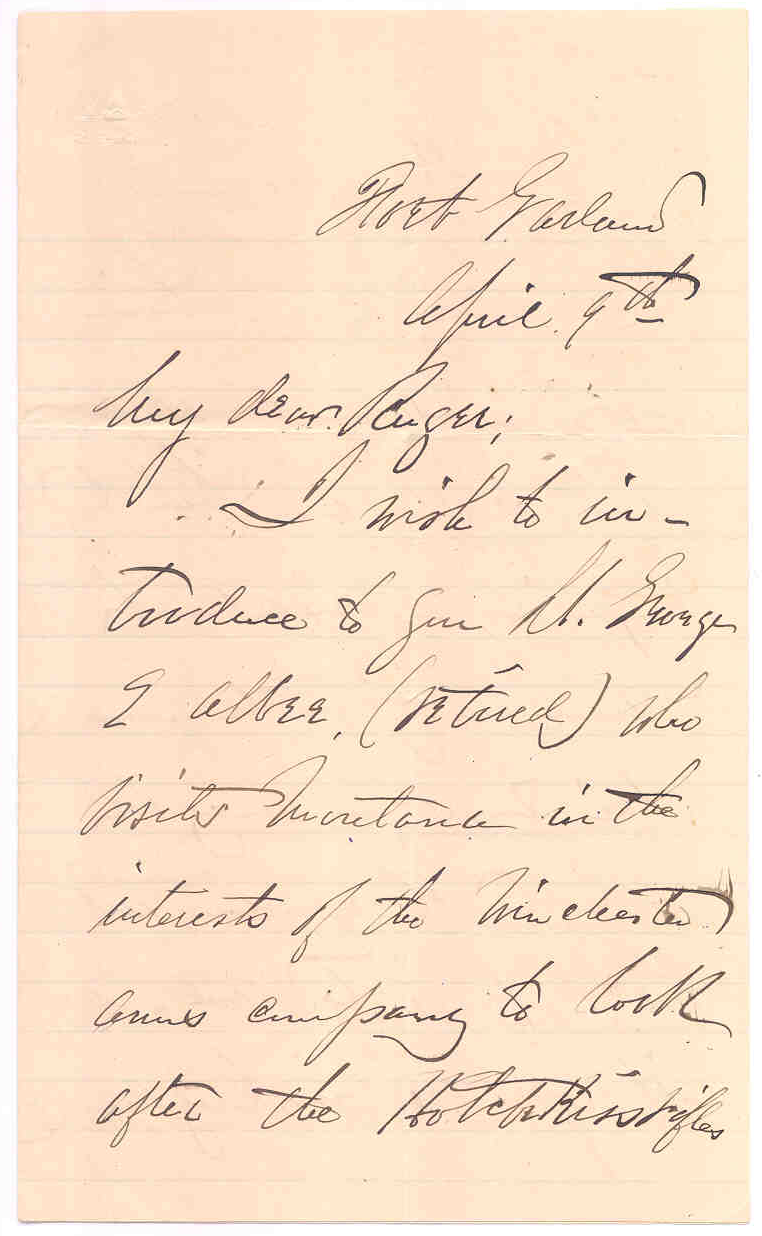 Fort Garland
April 9th
My dear Ruger;
I wish to in-
troduce to you Lt. George
E Albee, (retired) who
visits Montana in the
interests of the Winchester
arms company to look
after the Hotchkiss rifles